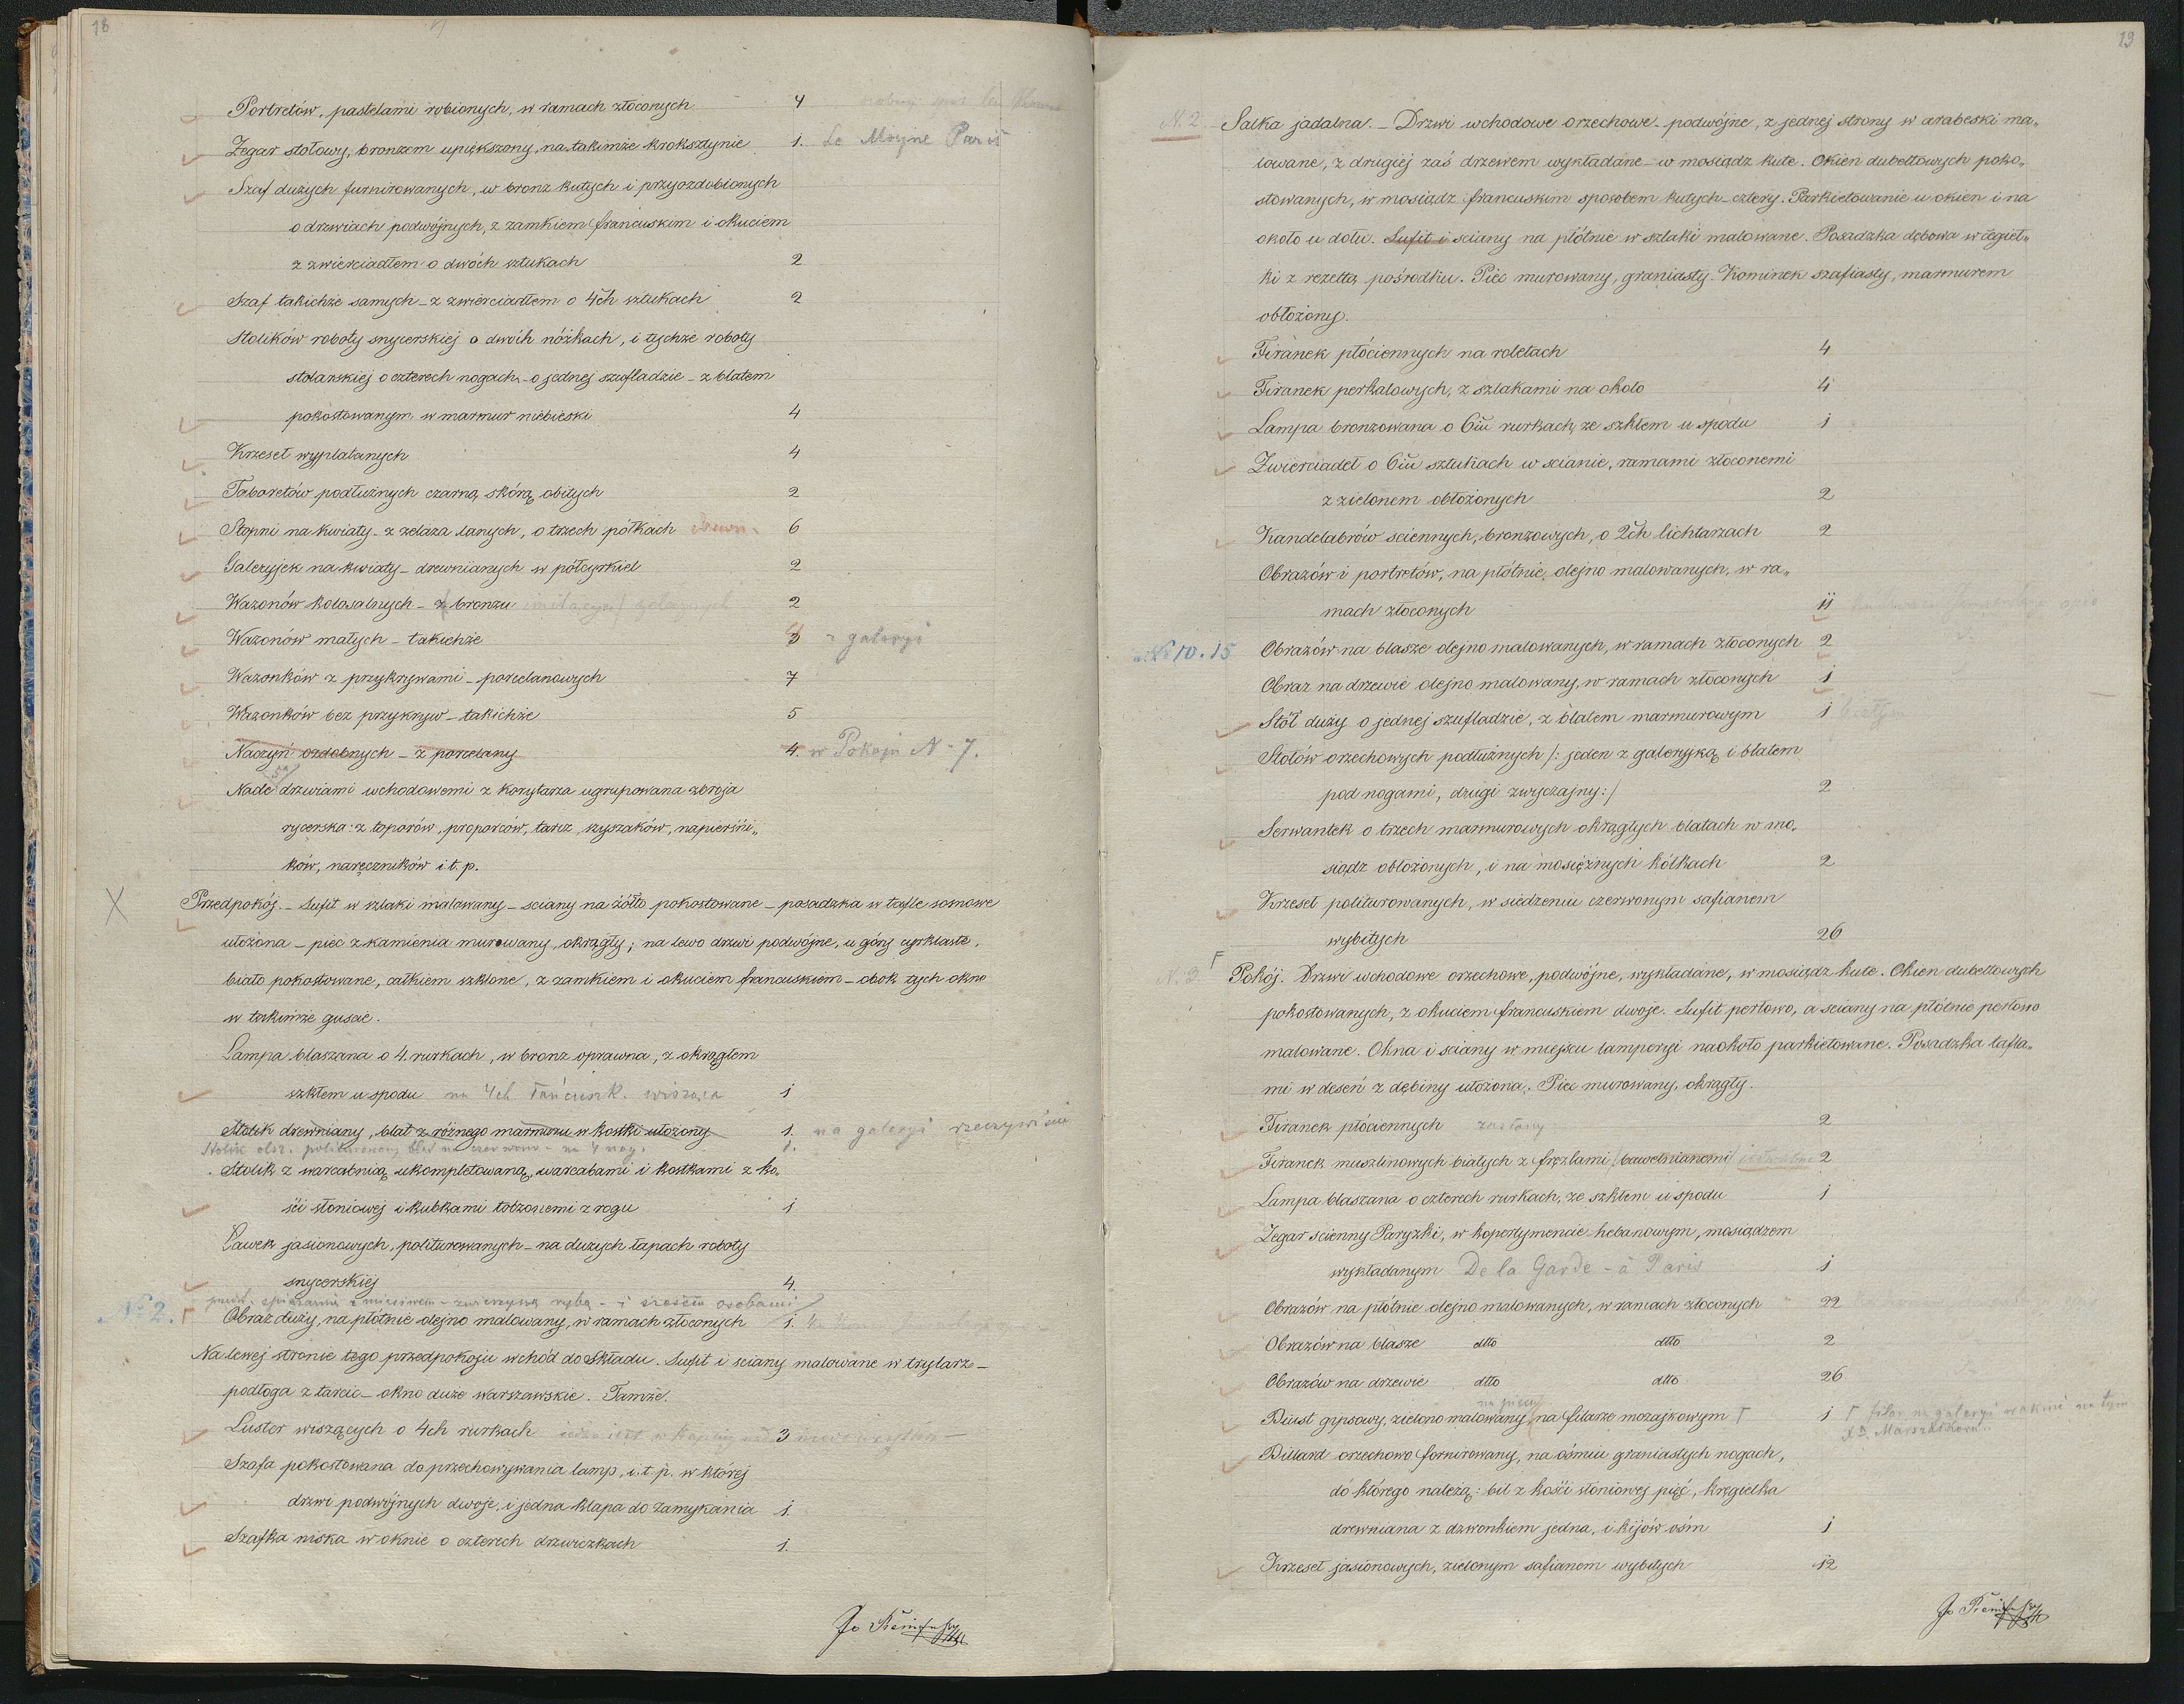 18
Portretów, pastelami robionych, w ramach złoconych 4
Zegar stołowy, bronzem upiększony, na takimże kroksztynie 1. Le Moyne Paris
Szaf dużych furnirowanych, w bronz kutych i przyozdobionych
o drzwiach podwójnych, z zamkiem francuskim i okuciem
z zwierciadłem o dwóch sztukach 2
Szaf takichże samych – z zwierciadłem o 4ch sztukach 2
Stolików roboty snycerskiej o dwóch nóżkach, i tychże roboty
stolarskiej o czterech nogach – o jednej szufladzie – z blatem
pokostowanym w marmur niebieski 4
Krzeseł wyplatanych 4
Taboretów podłużnych czarną skórą obitych 2
Stopni na kwiaty – z żelaza lanych, o trzech półkach 6
Galeryjek na kwiaty – drewnianych w półcyrkiel 2
Wazonów kolosalnych – z bronzu imitacya żelaznych 2
Wazonów małych – takichże 3 z galeryi
Wazonków z przykrywami – porcelanowych 7
Wazonków bez przykryw – takichże 5
Naczyń ozdobnych – z porcelany 4. w Pokoju N– 7.
Nade drzwiami wchodowemi z korytarza ugrupowana zbroja
rycerska: z toporów, proporców, tarcz, szyszaków, napierśni„
ków, naręczników i.t.p.
Przedpokój. – Sufit w szlaki malowany – sciany na żółto pokostowane – posadzka w tafle sosnowe
ułożona – piec z kamienia murowany, okrągły; na lewo drzwi podwójne, u góry cyrklaste,
biało pokostowane, całkiem szklone, z zamkiem i okuciem francuskiem – obok tych okno
w takimże guscie.
Lampa blaszana o 4 rurkach, w bronz oprawna, z okrągłem
szkłem u spodu na 4ch łańcuszk. wisząca 1
Stolik drewniany, blat z różnego marmuru w kostki ułożony 1. na galeryi rzeczywiście
Stolik olsz. politurowany blat na czerwono – na 4 nog. 1.
Stolik z warcabnią ukompletowaną, warcabami i kostkami z ko„
ści słoniowej i kubkami toczonemi z rogu 1
Ławek jasionowych, politurowanych – na dużych łapach roboty
snycerskiej 4.
przedst. spiżarnię z mięsiwem – zwierzyną rybą – i sześciu osobami
No 2. Obraz duży, na płótnie olejno malowany, w ramach złoconych 1.
Na lewej stronie tego przedpokoju wchód do Składu. Sufit i sciany malowane w trylarz –
podłoga z tarcic – okno duże warszawskie. Tamże.
Luster wiszących o 4ch rurkach 3
Szafa pokostowana do przechowywania lamp, i.t.p. w której
drzwi podwójnych dwoje, i jedna klapa do zamykania 1.
Szafka niska w oknie o czterech drzwiczkach 1.
19
N. 2. Salka jadalna. – Drzwi wchodowe orzechowe – podwójne, z jednej strony w arabeski ma„
lowane, z drugiej zaś drzewem wykładane – w mosiądz kute. Okien dubeltowych poko„
stowanych, w mosiądz francuskim sposobem kutych – cztery. Parkietowanie u okien i na
około u dołu. Sufit i sciany na płótnie w szlaki malowane. Posadzka dębowa w cegieł„
ki z rezettą pośrodku. Piec murowany, graniasty. Kominek szafiasty, marmurem
obłożony.
Firanek płóciennych na roletach 4
Firanek perkalowych, z szlakami na około 4
Lampa bronzowana o 6iu rurkach, ze szkłem u spodu 1
Zwierciadeł o 6iu sztukach w scianie, ramami złoconemi
z zielonem obłożonych 2
Kandelabrów sciennych, bronzowych, o 2ch lichtarzach 2
Obrazów i portretów, na płótnie, olejno malowanych, w ra„
mach złoconych 11
No 10. 15 Obrazów na blasze olejno malowanych, w ramach złoconych 2
Obraz na drzewie olejno malowany, w ramach złoconych 1
Stół duży o jednej szufladzie, z blatem marmurowym 1 białym
Stołów orzechowych podłużnych /: jeden z galeryjką i blatem
pod nogami, drugi zwyczajny :/ 2
Serwantek o trzech marmurowych okrągłych blatach w mo„
siądz obłożonych, i na mosiężnych kółkach 2
Krzeseł politurowanych, w siedzeniu czerwonym safianem
wybitych 26
N. 3 Pokój. Drzwi wchodowe orzechowe, podwójne, wykładane, w mosiądz kute. Okien dubeltowych
pokostowanych, z okuciem francuskiem dwoje. Sufit perłowo, a sciany na płótnie perłowo
malowane. Okna i sciany w miejscu lamperyi naokoło parkietowane. Posadzka tafla„
mi w deseń z dębiny ułożona. Piec murowany, okrągły.
Firanek płóciennych zasłony 2
Firanek muszlinowych białych z fręzlami bawełnianemi 2
Lampa blaszana o czterech rurkach, ze szkłem u spodu 1
Zegar scienny Paryzki, w kopertymencie hebanowym, mosiądzem
wykładanym De la Garde – à Paris 1
Obrazów na płótnie olejno malowanych, w ramach złoconych 22
Obrazów na blasze dtto dtto 2
Obrazów na drzewie dtto dtto 26
na piecu
Biust gipsowy, zielono malowany, na filarze mozajkowym 1 filar na galeryi
Billard orzechowo fornirowany, na ośmiu graniastych nogach,
do którego należą: bil z kości słoniowej pięć, kręgielka
drewniana z dzwonkiem jedna, i kijów ośm 1
Krzeseł jasionowych, zielonym safianem wybitych 12